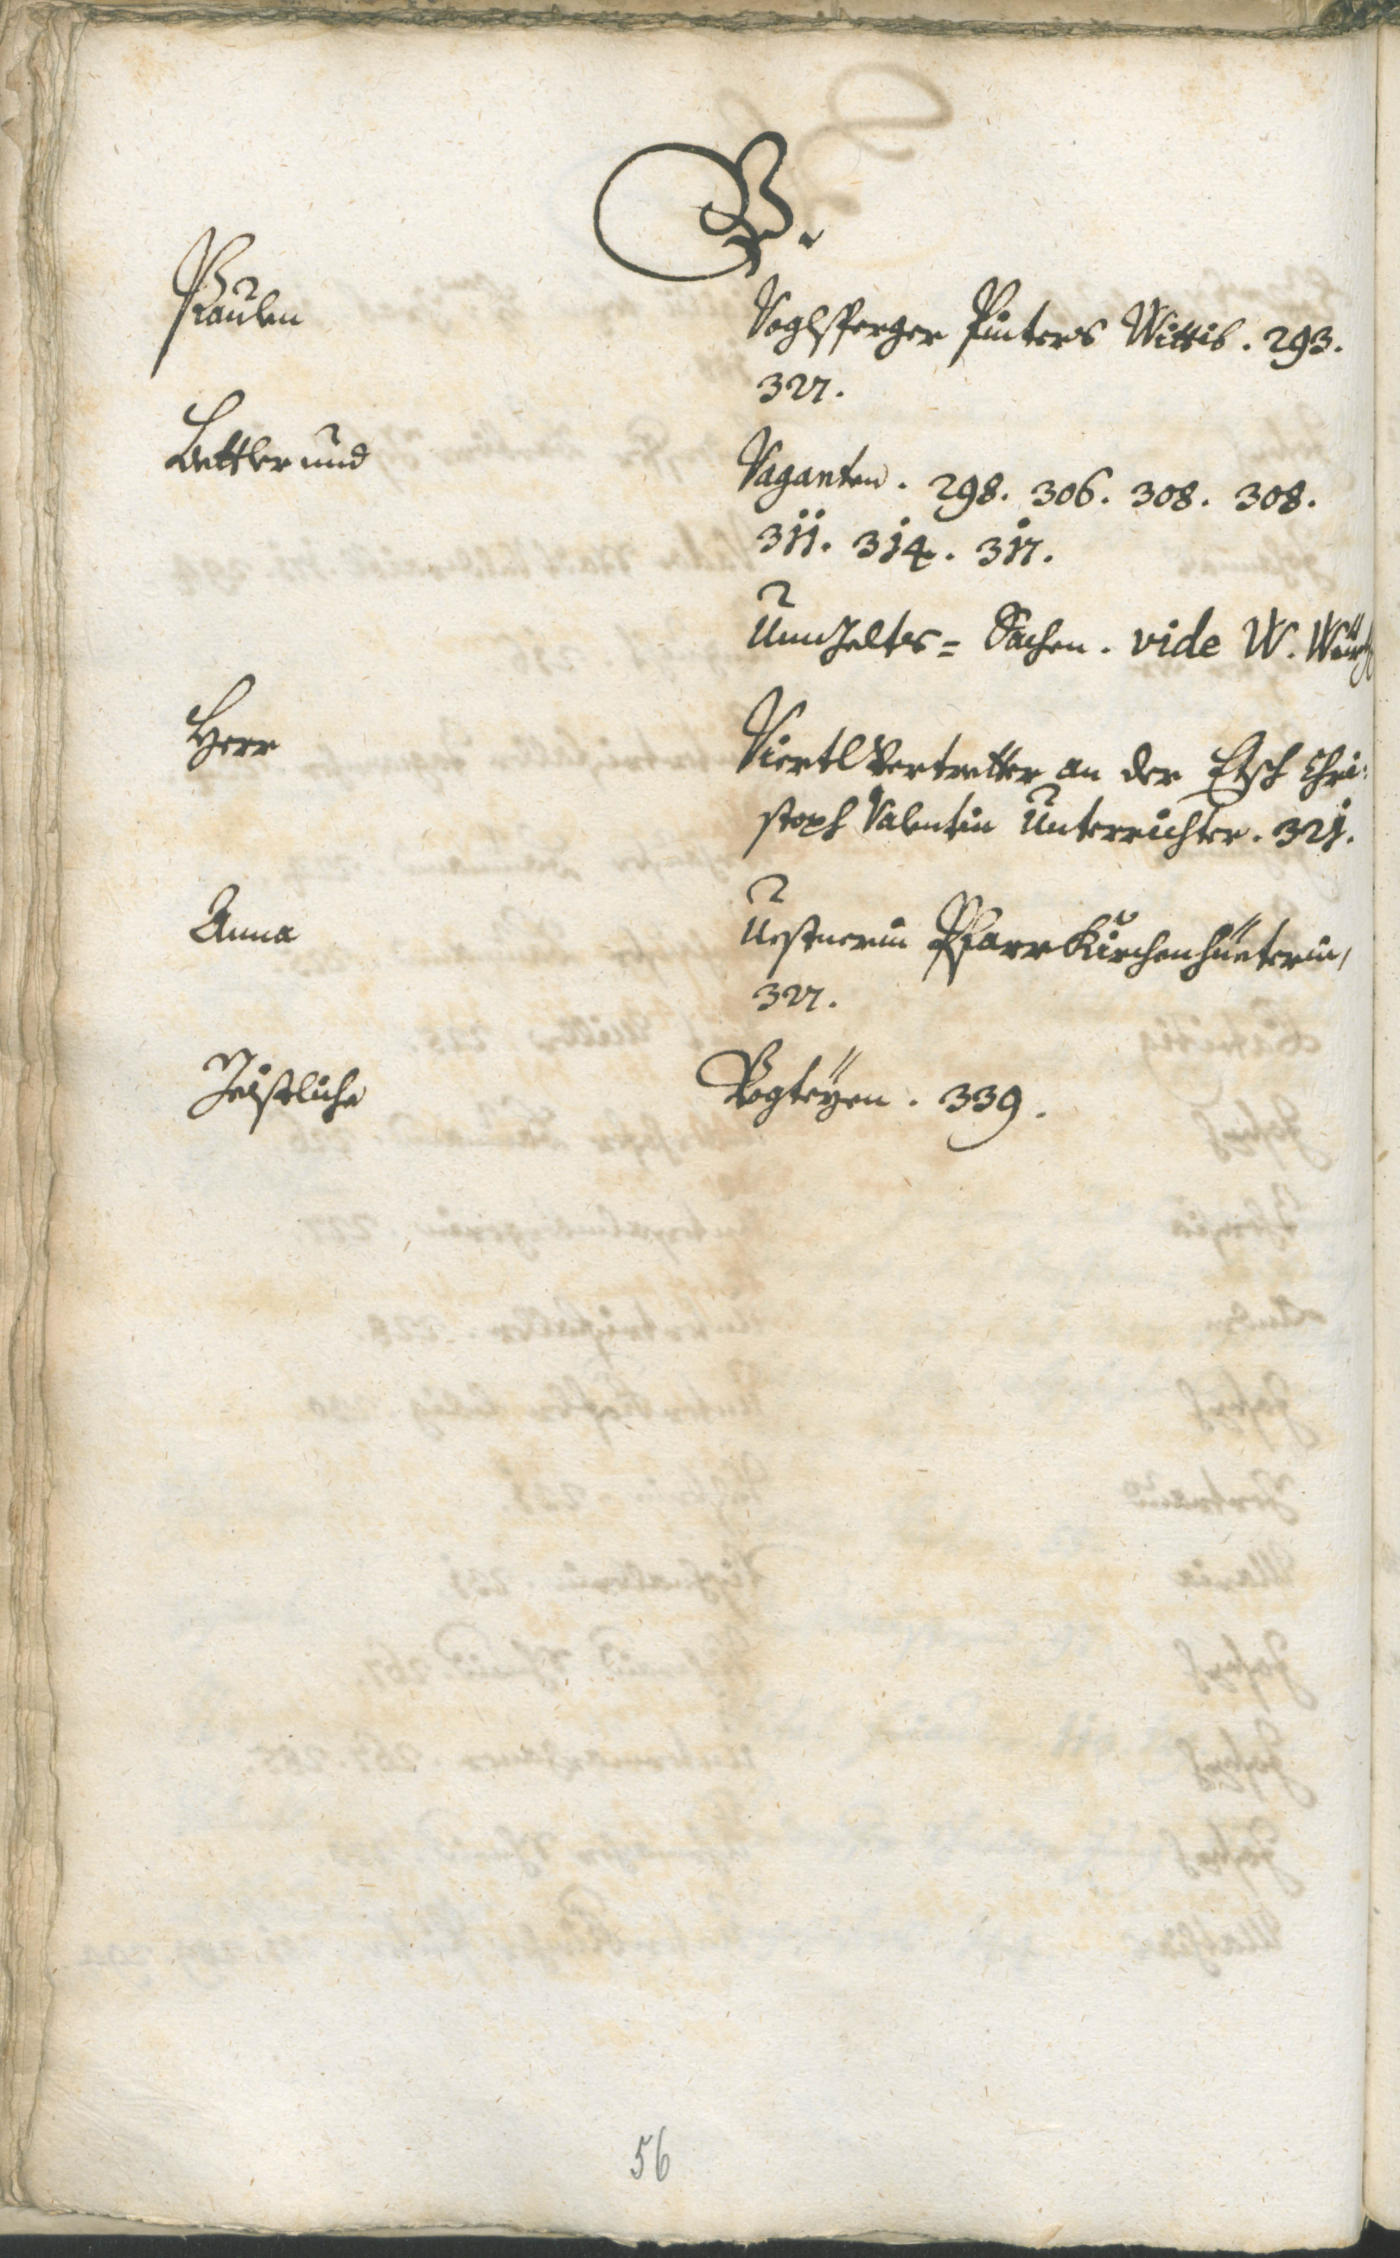 V.
Paulen Voglsperger Pinters Wittib. 293.
327.
Bettler und Vaganten. 298. 306. 308. 308.
311. 314. 317.
Sachen. vide W.
Herr Viertl Vertretter an der Etsch Chri-
stoph Valentin Unterrichter. 321.
Anna Pfarr Kirchenhüeterin,
327.
Geistliche Vogteÿen. 339.
56